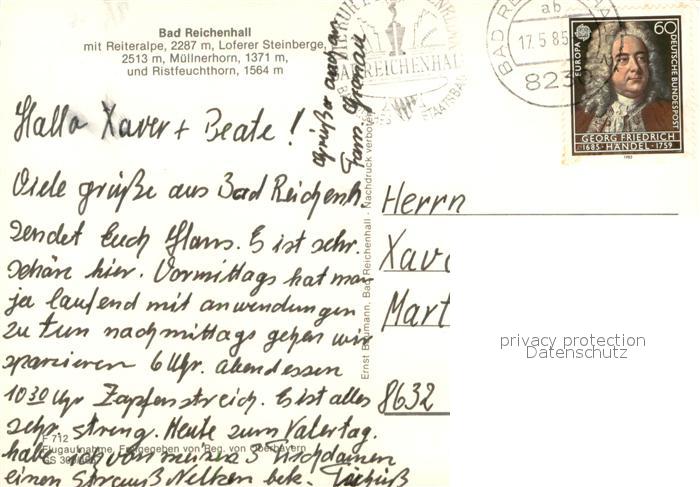 Bad Reichenhall
mit Reiteralpe, 2287 m, Loferer Steinberge,
2513 m, Müllnerhorn, 1371 m,
und Ristfeuchthorn, 1564 m
Hallo Xaver + Beate!
Grüße auch an
Fam. Gronau
Viele grüße aus Bad Reichenh.
sendet Euch Hans. Es ist sehr.
schöne hier. Vormittags hat man
ja laufend mit anwendungen
zu tun nachmittags gehen wir
spazieren 6 Uhr. abendessen
10 30 Uhr Zapfenstreich. Es ist alles
sehr. streng. Heute zum Vatertag.
habe ich von meinen 3 Tischdamen
einen Strauß Nelken bek. Tschüß
F 712
Flugaufnahme, Freigegeben von Reg. von Oberbayern
Ernst Baumann, Bad Reichenhall - Nachdruck verboten
BAD REICHENHALL
STAATSBAD
BAD REICHENHALL
ab
17.5.85
823
EUROPA
60
DEUTSCHE BUNDESPOST
GEORG FRIEDRICH
1685 · HÄNDEL · 1759
1985
Herrn
Xav
Mart
8632
privacy protection
Datenschutz